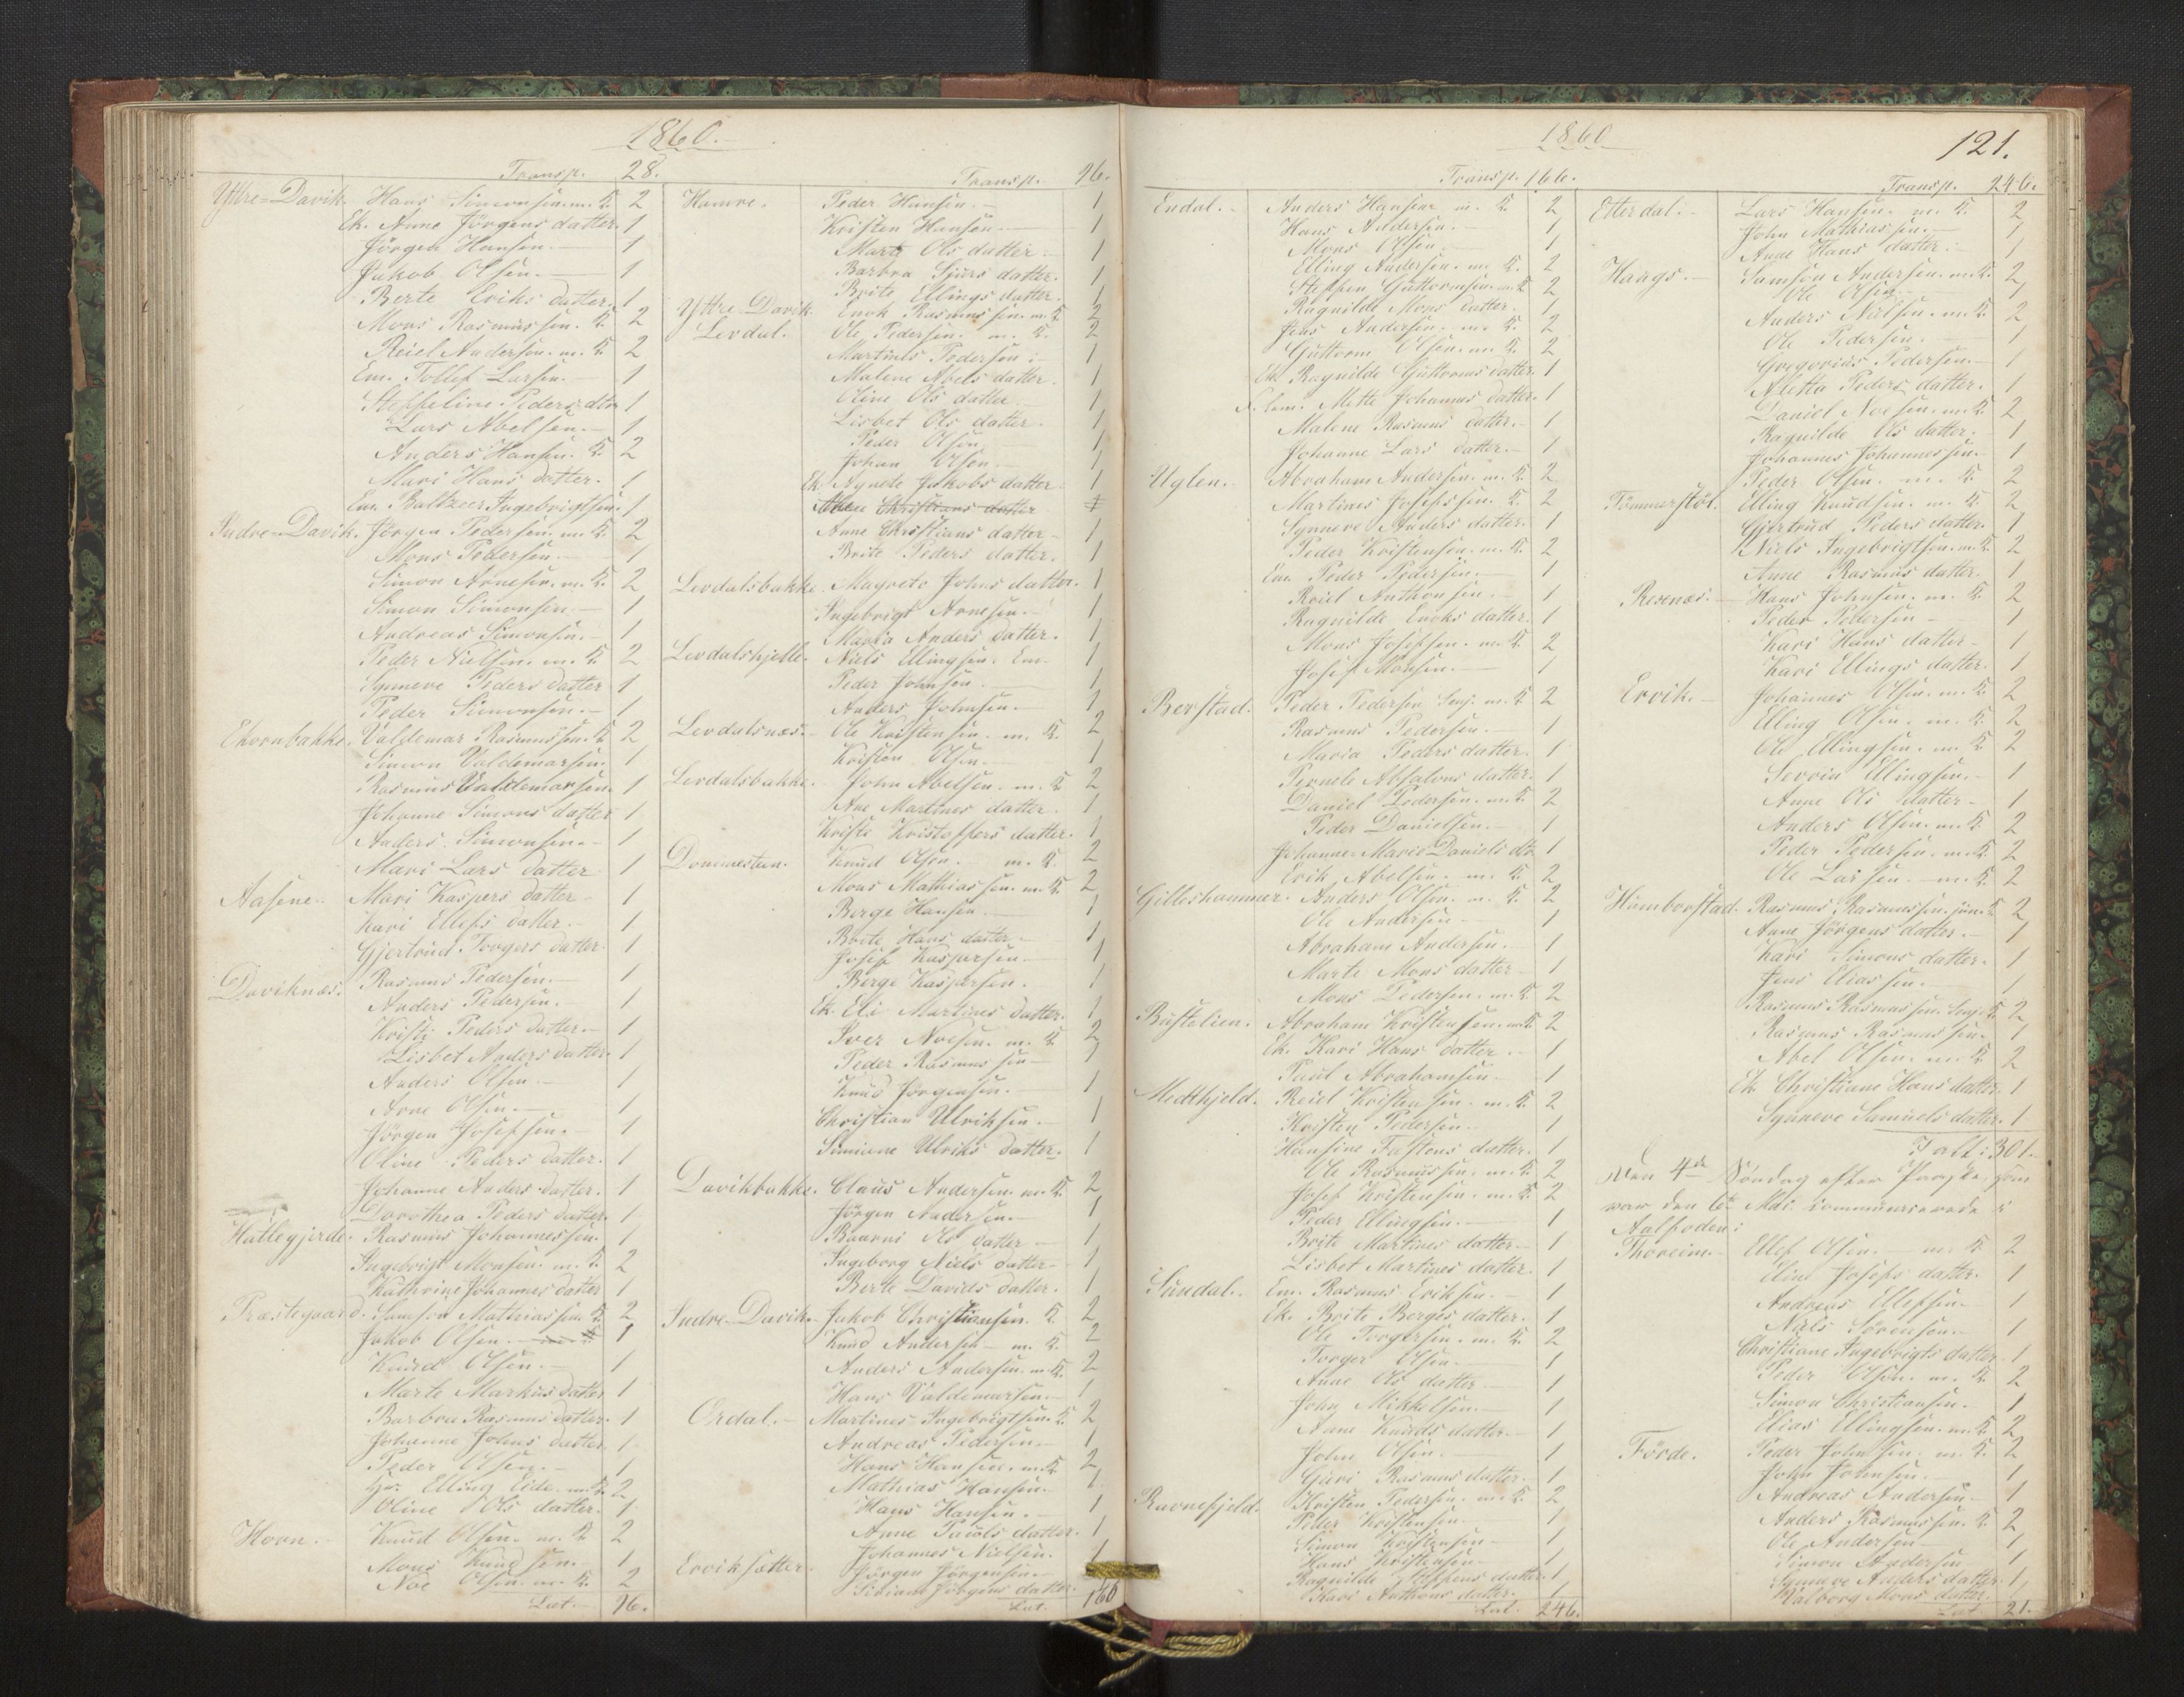 1860.
Transp. 28.
Yttre-Davik. Hans Simonsen m. K. 2
Ek. Anne Jörgens datter. 1
Jörgen Hansen. 1
Jakob Olsen. 1
Berte Eriks datter. 1
Mons Rasmussen. K. 2
Reiel Andersen. m. K. 2
Em. Tollef Larsen. 1
Steffeline Peders dtr 1
Lars Abelsen. 1
Anders Hansen. K. 2
Mari Hans datter. 1
Em. Baltzer Ingebrigtsen. 1
Indre-Davik. Jörgen Pedersen. m. K. 2
Mons Pedersen. 1
Simon Arnesen. m. K. 2
Simon Simonsen. 1
Andreas Simonsen. 1
Peder Nielsen. m. K. 2
Synneve Peders datter 1
Peder Simonsen. 1
Ekornbakke. Valdemar Rasmussen. K. 2
Simon Valdemarsen. 1
Rasmus Valdemarsen. 1
Johanne Simons datter 1
Anders Simonsen. 1
Mari Lars datter 1
Aasene. Mari Kaspers datter 1
Kari Ellefs datter. 1
Gjertrud Torgers datter. 1
Daviknæs. Rasmus Pedersen. 1
Anders Pedersen. 1
Kristi Peders datter. 1
Lisbet Anders datter. 1
Anders Olsen. 1
Arne Olsen. 1
Jörgen Josefsen. 1
Oline Peders datter. 1
Johanne Anders datter. 1
Dorothea Peders datter. 1
Hatlegjerde. Rasmus Johannessen. 1
Ingebrigt Monsen. m. K. 2
Kathrine Johannes datter 1
Præstegaard. Samson Mathiassen. K. 2
Jakob Olsen. 1
Knud Olsen. 1
Marte Markus datter 1
Barbra Rasmus datter. 1
Johanne Johns datter. 1
Peder Olsen. 1
Hr. Elling Eide. m. K. 2
Oline Ols datter. 1
Hovn. Knud Olsen. m. K. 2
Mons Knudsen. 1
Noe Olsen. m. K. 2
Lat. 96.
Transp. 96.
Hamre. Peder Hansen. 1
Kristen Hansen. 1
Marte Ols datter. 1
Barbra Sjurs datter. 1
Brite Ellings datter. 1
Yttre Davik. Enok Rasmussen. m. K. 2
Levdal. Ole Pedersen. m. K. 2
Martines Pedersen. 1
Malene Abels datter. 1
Oline Ols datter. 1
Lisbet Ols datter. 1
Peder Olsen. 1
Johan Olsen. 1
Ek. Agnete Jakobs datter 1
Christians datter
Anne Christians datter. 1
Brite Peders datter. 1
Levdalsbakke. Magrete Johns datter. 1
Ingebrigt Arnesen. 1
Maria Anders datter. 1
Levdalskjelle. Niels Ellingsen. Em. 1
Peder Johnsen. 1
Anders Johnsen. 1
Levdalsnæs. Ole Kristensen. m. K. 2
Kristen Olsen. 1
Levdalsbakke. John Abelsen. m. K. 2
Ane Martines datter. 1
Kristi Kristoffers datter. 1
Dommesten. Knud Olsen. m. K. 2
Mons Mathiassen. m. K. 2
Berge Hansen. 1
Brite Hans datter. 1
Josef Kaspersen. 1
Berge Kaspersen. 1
Ek. Eli Martines datter. 1
Iver Noesen. m. K. 2
Peder Rasmussen 1
Knud Jörgensen. 1
Christian Ulriksen. 1
Simione Ulriks datter. 1
Davikbakke. Claus Andersen. m. K. 2
Jörgen Andersen. 1
Raunni Ols datter 1
Ingeborg Niels datter 1
Berte Davids datter. 1
Indre-Davik. Jakob Christiansen. K. 2
Knud Andersen m. K. 2
Anders Andersen. m. K. 2
Hans Valdemarsen. 1
Ordal. Martines Ingebrigtsen. K. 2
Andreas Pedersen. 1
Hans Hansen. m. K. 2
Mathias Hansen. 1
Hans Hansen. 1
Anne Pauls datter. 1
Johannes Nielsen.
Erviksætter Jörgen Jörgensen.
Jörgens datter.
Lat. 166
1860
121.
Transp. 166.
Endal. Anders Hansen m. K. 2
Hans Andersen. 1
Mons Olsen. 1
Elling Andersen. m. K. 2
Steffen Guttormsen. m. K. 2
Ragnilde Mons datter. 1
Jens Andersen. m. K. 2
Guttorm Olsen. m. K. 2
Ek. Ragnilde Guttorms datter. 1
Mette Johannes datter. 1
Malene Rasmus datter. 1
Johanne Lars datter. 1
Uglen. Abraham Andersen. m. K. 2
Martines Josefssen. K. 2
Synneve Anders datter. 1
Peder Kristensen. m. K. 2
Em. Peder Pedersen. 1
Reiel Anthonsen. 1
Ragnilde Enoks datter. 1
Mons Josefsen. m. K. 2
Josef Monsen. 1
Berstad. Peder Pedersen Senj. m. K. 2
Rasmus Pedersen. 1
Maria Peders datter. 1
Pernele Absalons datter. 1
Daniel Pedersen. m. K. 2
Peder Danielsen. 1
Johanne-Marie Daniels dtr 1
Erik Abelsen. m. K. 2
Gilleshammer. Anders Olsen. m. K. 2
Ole Andersen 1
Abraham Andersen. 1
Marte Mons datter 1
Mons Pedersen. m. K. 2
Bustelien. Abraham Kristensen. m. K. 2
Ek. Kari Hans datter. 1
Paul Abrahamsen. 1
Medthjeld. Reiel Kristensen. m. K. 2
Kristen Pedersen. 1
Hansine Fastens datter. 1
Ole Rasmussen. m. K. 2
Josef Kristensen. m. K. 2
Peder Ellingsen. 1
Brite Martines datter. 1
Lisbet Martines datter. 1
Sundal. Em. Rasmus Eriksen. 1
Ek. Brite Berges datter. 1
Ole Torgersen. m. K. 2
Torger Olsen. 1
Anne Ols datter. 1
John Mikkelsen. 1
Anne Knuds datter. 1
John Olsen. 1
Guri Rasmus datter. 1
Ravnefjeld. Kristen Pedersen. m. K. 2
Peder Kristensen. 1
Simon Kristensen 1
Hans Kristensen 1
Ragnilde Steffens datter. 1
Kari Anthons datter. 1
Lat. 246.
Transp. 246.
Etterdal. Lars Hansen. m. K. 2
John Mathiassen. 1
Ane Hans datter. 1
Haags. Samson Andersen. m. K. 2
Ole Olsen 1
Anders Nielsen. m. K. 2
Ole Pedersen. 1
Gregorius Pedersen. 1
Aletta Peders datter. 1
Daniel Noesen. m. K. 2
Ragnilde Ols datter. 1
Johannes Johannessen. 1
Peder Olsen. m. K. 2
Tömmerstöl. Elling Knudsen. m. K. 2
Gjertrud Peders datter. 1
Niels Ingebrigtsen. m. K. 2
Anne Rasmus datter. 1
Resenæs. Hans Johnsen. m. K. 2
Peder Pedersen 1
Kari Hans datter 1
Kari Ellings datter. 1
Ervik. Johannes Olsen. m. K. 2
Elling Olsen. m. K. 2
Ole Ellingsen. m. K. 2
Severin Ellingsen. 1
Anne Ols datter 1
Anders Olsen. m. K. 2
Peder Pedersen. m. K. 2
Ole Larsen. m. K. 2
Humborstad. Rasmus Rasmussen. jun. K. 2
Anne Jörgens datter. 1
Kari Simons datter. 1
Jens Eliassen. 1
Rasmus Rasmussen. Senj. K. 2
Rasmus Rasmussen. 1
Abel Olsen. m. K. 2
Ek. Christiane Hans datter. 1
Synneve Samuels datter. 1
Talt: 301.
Den 4de Söndag efter Paaske, som
var den 6te Mai. communicerede i
Aalfoden:
Thoreim. Ellef Olsen. m. K. 2
Eline Josefs datter. 1
Andreas Ellefsen. 1
Niels Sörensen. 1
Christiane Ingebrigts datter. 1
Peder Olsen. m. K. 2
Simon Christiansen. 1
Elias Ellingsen. m. K. 2
Förde. Peder Johnsen. m. K. 2
John Johnsen. 1
Andreas Andersen 1
Anders Rasmussen. K. 2
Ole Andersen 1
Simon Andersen 1
Synneve Anders datter. 1
Valborg Mons datter.
Lat. 21.